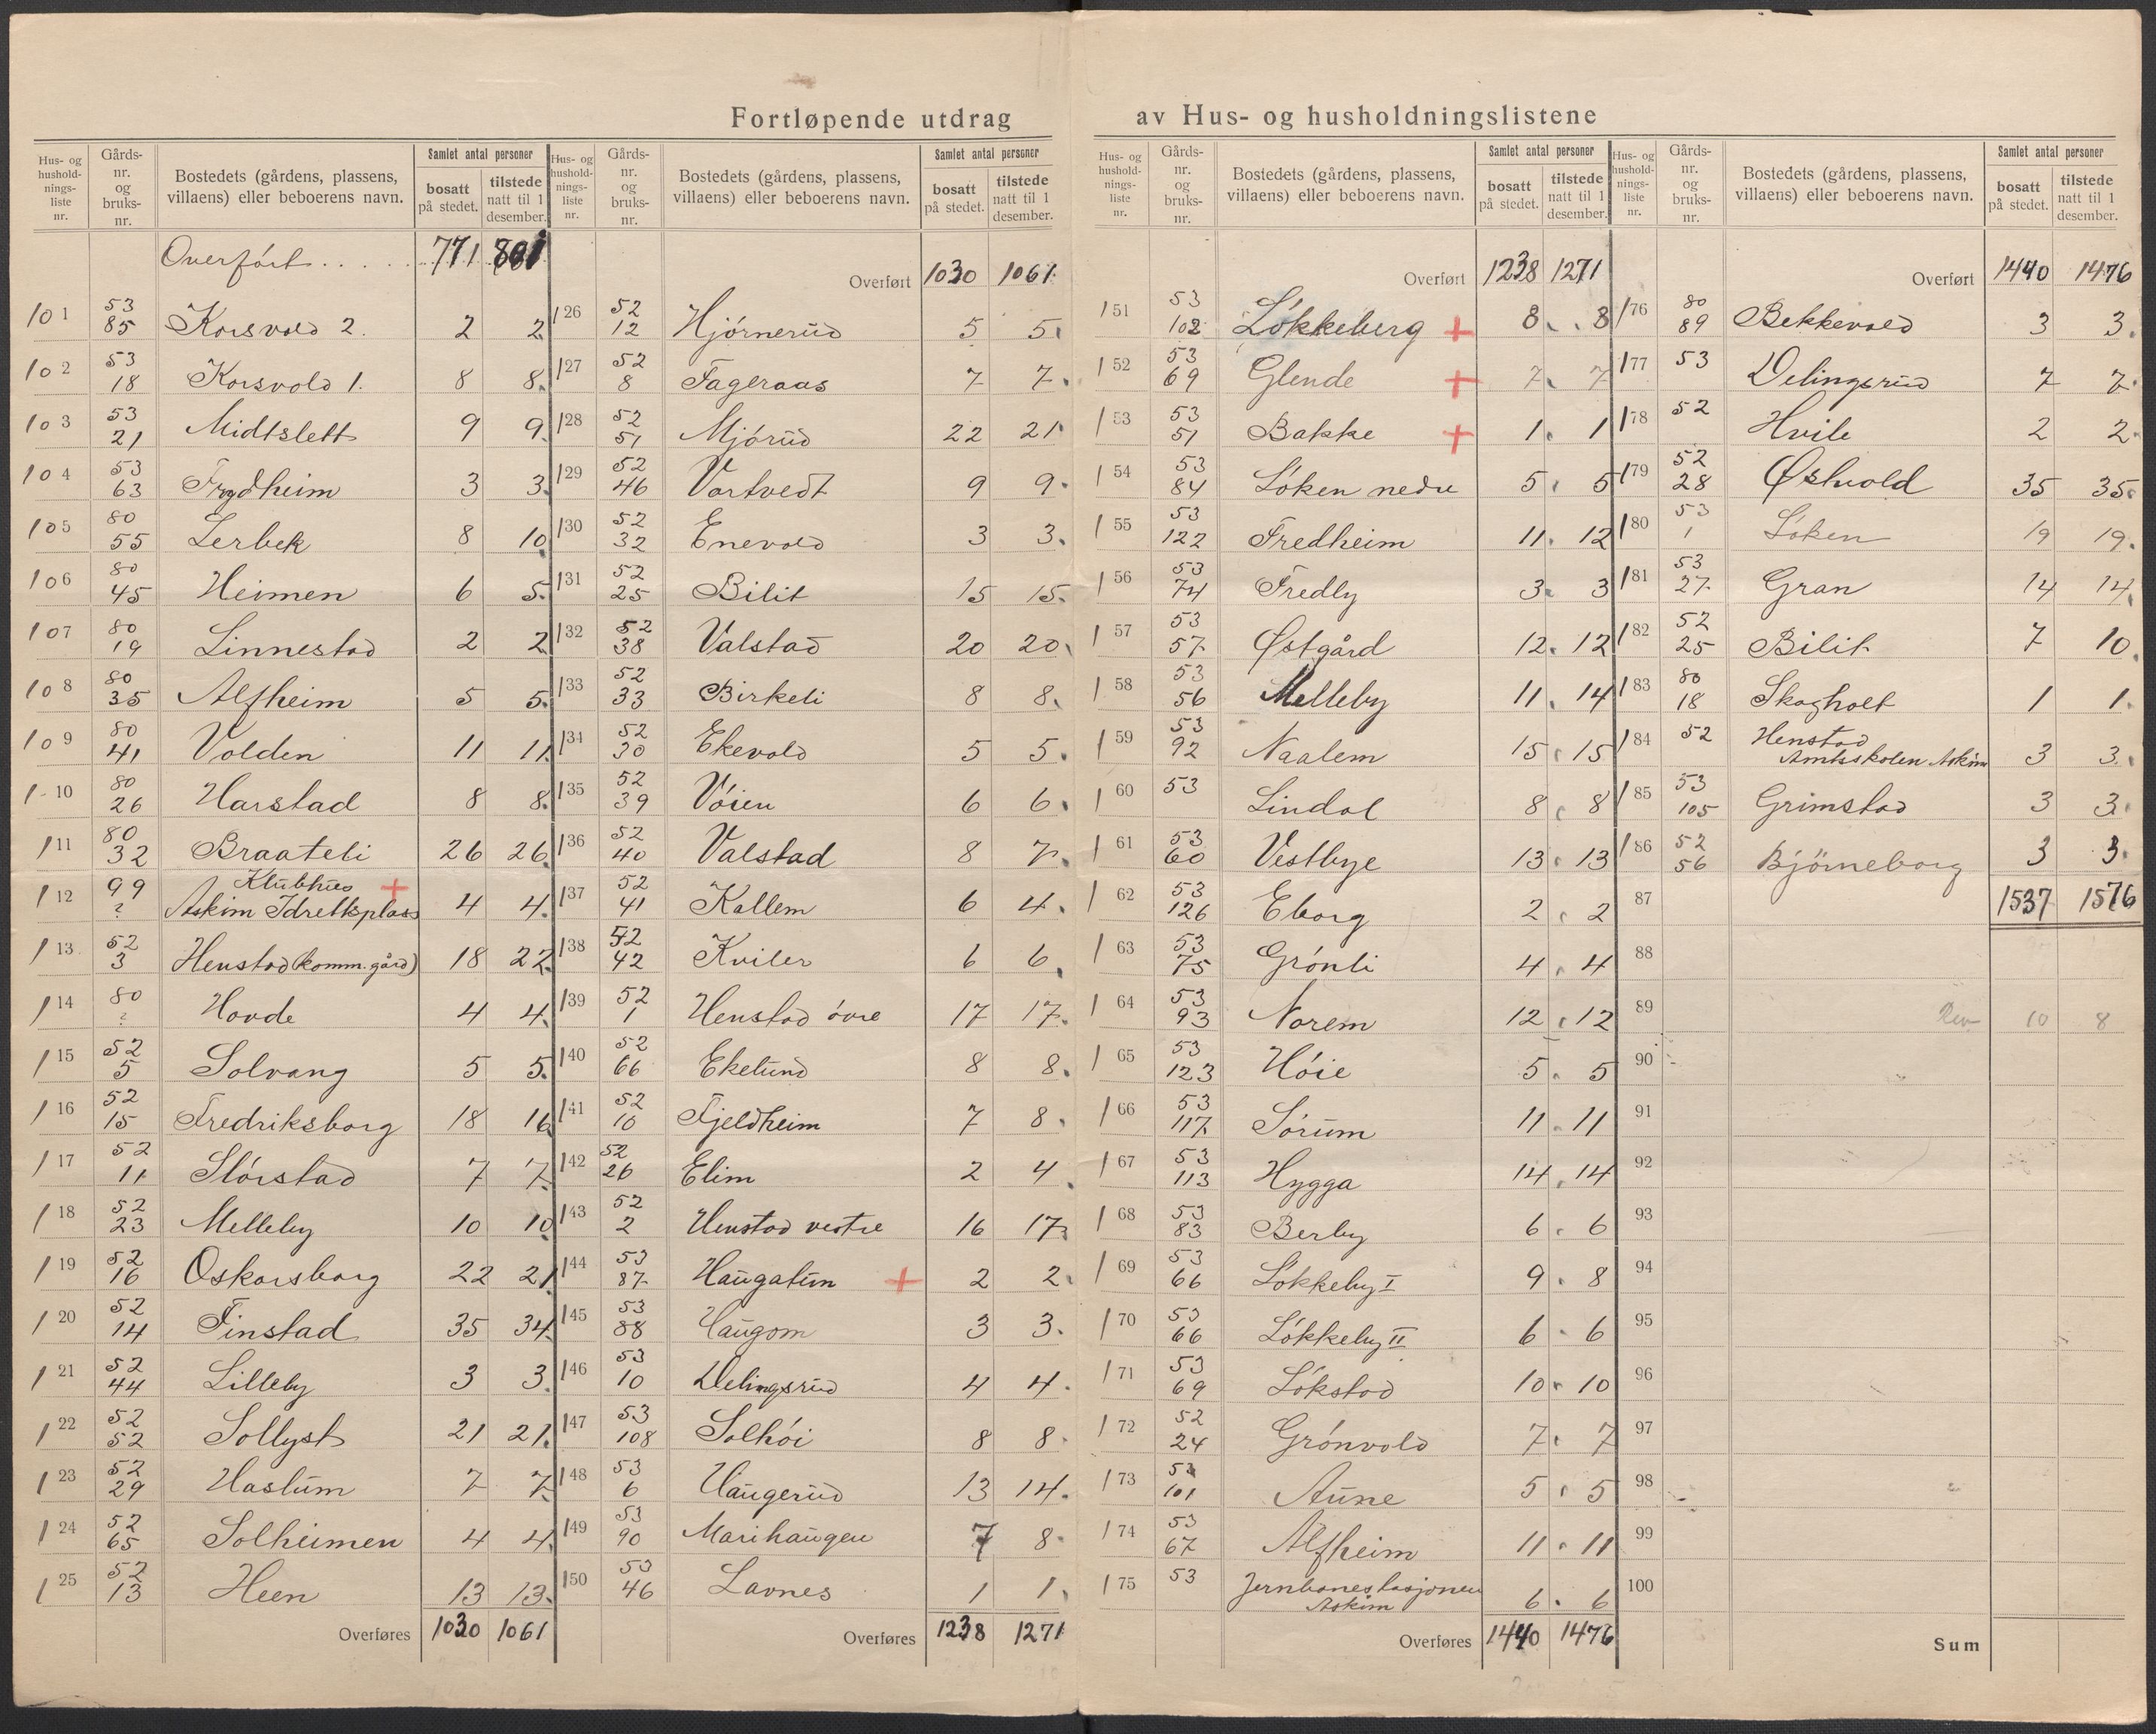 Fortløpende utdrag av Hus- og husholdningslistene
Hus- og hushold- nings- liste nr. | Gårds- nr. og bruks- nr. | Bostedets (gårdens, plassens, villaens) eller beboerens navn. | Samlet antal personer | bosatt på stedet. | tilstede natt til 1 desember.
Overført..... 771 801
101 53 85 Korsvold 2. 2 2
102 53 18 Korsvold 1. 8 8.
103 53 21 Midtslett 9 9.
104 53 63 Frydheim 3 3.
105 80 55 Lerbek 8 10
106 80 45 Heimen 6 5.
107 80 19 Linnestad 2 2
108 80 35 Alfheim 5 5.
109 80 41 Volden 11 11
110 80 26 Harstad 8 8.
111 80 32 Braateli 26 26.
112 99 ? Klubhus Askim Idrettsplass + 4 4.
113 52 3 Henstad (komm. gård) 18 22.
114 80 ? Hovde 4 4.
115 52 5 Solvang 5 5.
116 52 15 Fredriksborg 18 16
117 52 11 Slórstad 7 7.
118 52 23 Melleby 10 10
119 52 16 Oskarsborg 22 21
120 52 14 Finstad 35 34
121 52 44 Lilleby 3 3.
122 52 52 Sollyst 21 21.
123 52 29 Haslum 7 7.
124 52 65 Solheimen 4 4
125 52 13 Heen 13 13.
Overføres 1030 1061
Hus- og hushold- nings- liste nr. | Gårds- nr. og bruks- nr. | Bostedets (gårdens, plassens, villaens) eller beboerens navn. | Samlet antal personer | bosatt på stedet. | tilstede natt til 1 desember.
Overført 1030 1061
126 52 12 Hjórnerud 5 5.
127 52 8 Fageraas 7 7.
128 52 51 Mjórud 22 21
129 52 46 Vortvedt 9 9.
130 52 32 Enevold 3 3.
131 52 25 Bilit 15 15.
132 52 38 Valstad 20 20.
133 52 33 Birkeli 8 8.
134 52 30 Ekevold 5 5.
135 52 39 Vóien 6 6.
136 52 40 Valstad 8 7.
137 52 41 Kallem 6 4.
138 52 42 Kviler 6 6.
139 52 1 Henstad óvre 17 17.
140 52 66 Ekelund 8 8.
141 52 10 Fjeldheim 7 8.
142 52 26 Elim 2 4.
143 52 2 Henstad vestre 16 17.
144 53 87 Haugatun + 2 2.
145 53 88 Haugom 3 3.
146 53 10 Delingsrud 4 4.
147 53 108 Solhói 8 8.
148 53 6 Haugerud 13 14.
149 53 90 Marihaugen 7 8.
150 53 46 Lavnes 1 1.
Overføres 1238 1271
Hus- og hushold- nings- liste nr. | Gårds- nr. og bruks- nr. | Bostedets (gårdens, plassens, villaens) eller beboerens navn. | Samlet antal personer | bosatt på stedet. | tilstede natt til 1 desember.
Overført 1238 1271
151 53 102 Lókkeberg + 8. 8
152 53 69 Glende + 7. 7
153 53 51 Bakke + 1. 1
154 53 84 Lóken nedre 5. 5
155 53 122 Fredheim 11. 12
156 53 74 Fredly 3. 3
157 53 57 Østgård 12. 12
158 53 56 Melleby 11. 14
159 53 92 Naalem 15. 15
160 53 Lindal 8. 8
161 53 60 Vestbye 13. 13
162 53 126 Eborg 2. 2
163 53 75 Grónli 4. 4
164 53 93 Norem 12. 12
165 53 123 Hóie 5. 5
166 53 117 Sórum 11. 11
167 53 113 Hygga 14. 14
168 53 83 Berby 6. 6
169 53 66 Lókkeby I 9. 8
170 53 66 Lókkeby II 6. 6
171 53 69 Lókstad 10. 10
172 52 24 Grónvold 7. 7
173 52 101 Aune 5. 5
174 53 67 Alfheim 11. 11
175 53 Jernbanestasjonen Askim 6. 6
Overføres 1440 1476
Hus- og hushold- nings- liste nr. | Gårds- nr. og bruks- nr. | Bostedets (gårdens, plassens, villaens) eller beboerens navn. | Samlet antal personer | bosatt på stedet. | tilstede natt til 1 desember.
Overført 1440 1476
176 80 89 Bekkevold 3 3.
177 53 Delingsrud 7 7.
178 52 Hvile 2 2.
179 52 28 Østvold 35 35.
180 53 1 Lóken 19 19.
181 53 27 Gran 14 14.
182 52 25 Bilit 7 10.
183 80 18 Skogholt 1 1.
184 52 Henstad Amtsskolen Askim 3 3.
185 53 105 Grimstad 3 3.
186 52 56 Bjórneborg 3 3.
87 1537 1576
88
89 Rev 10 8
90
91
92
93
94
95
96
97
98
99
100
Sum